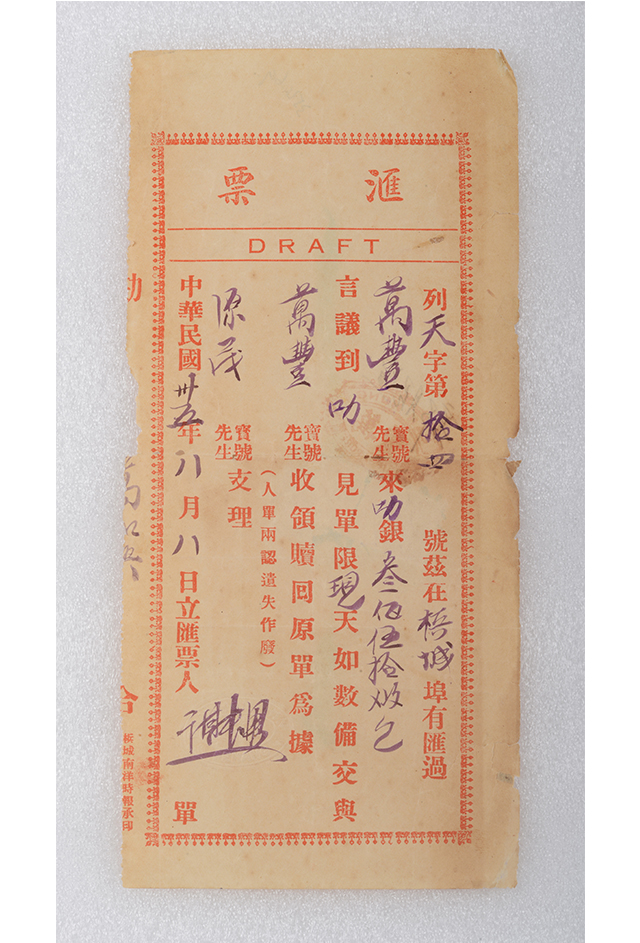 滙票
DRAFT
列天字第拾四號茲在梹城埠有匯過
萬豐寶號先生來叻銀叁佰伍拾
言議到叻見單限現天如數備交與
萬豐寶號先生收領贖回原單爲據
(人單兩認遺失作廢)
源茂寶號先生支理
中華民國卅五年八月八日立匯票人 單
梹城南洋時報承印